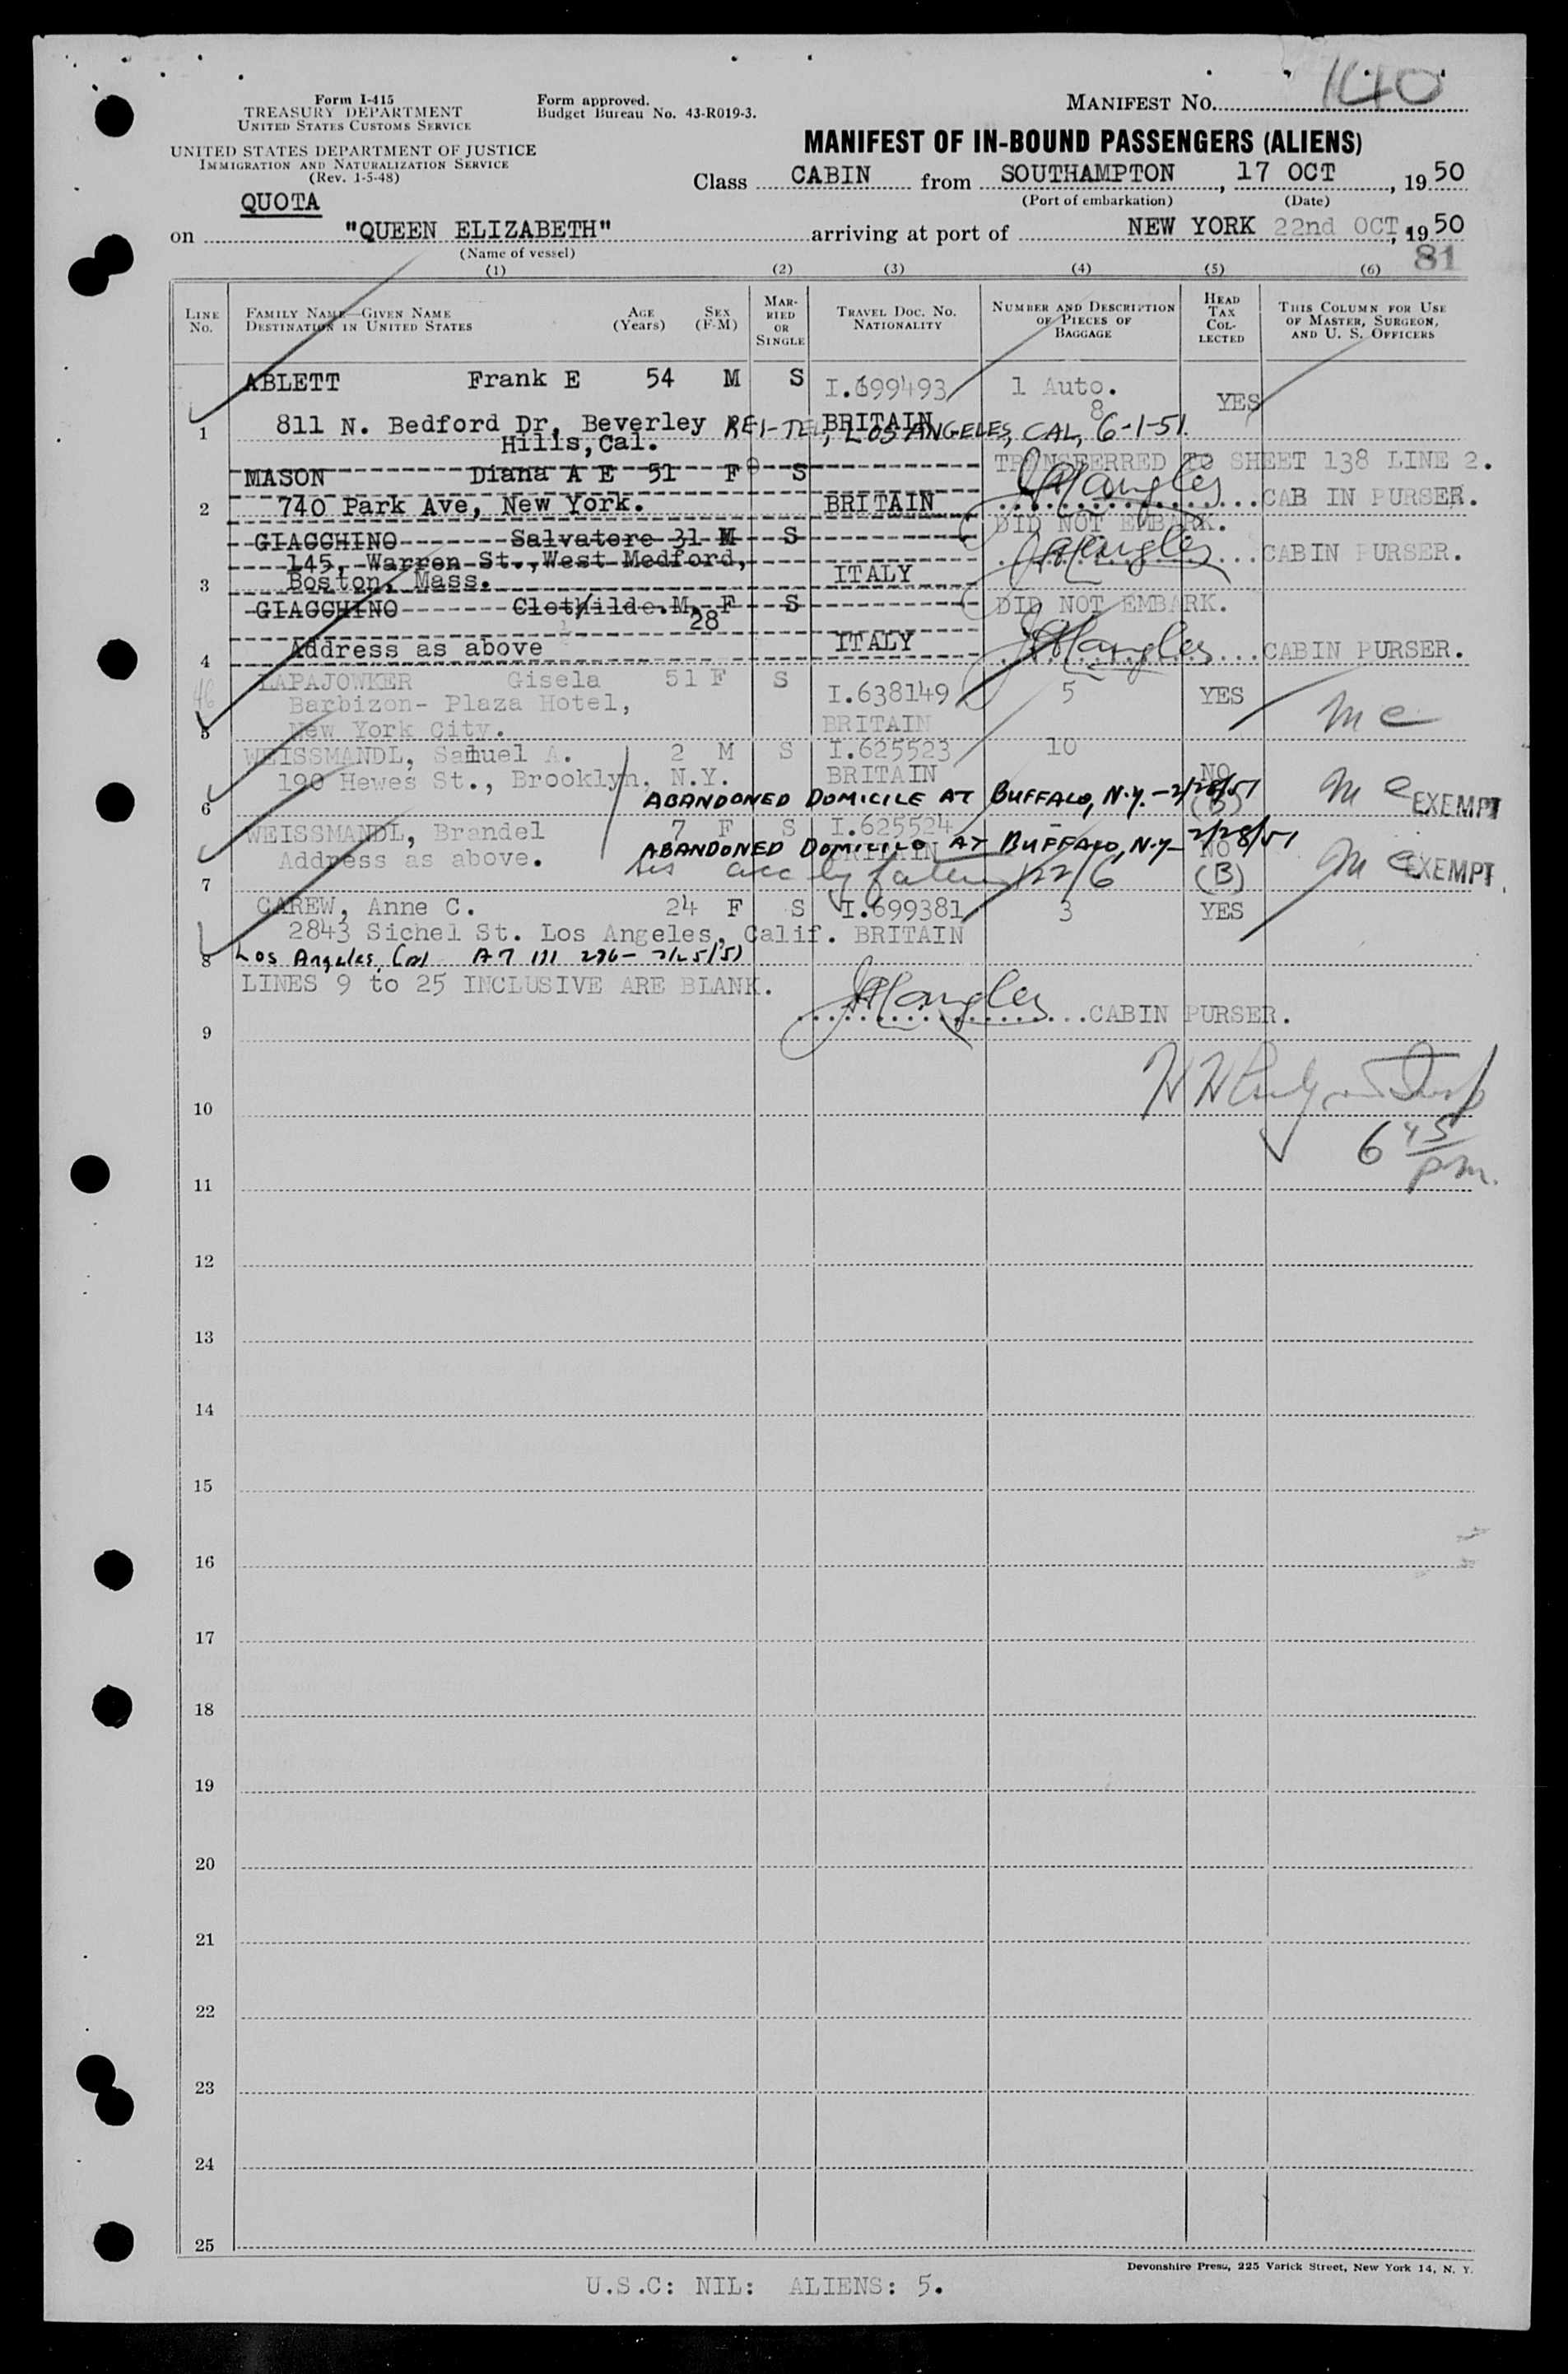 140
Form I-415
TREASURY DEPARTMENT
UNITED STATES CUSTOMS SERVICE
UNITED STATES DEPARTMENT OF JUSTICE
IMMIGRATION AND NATURALIZATION SERVICE
(Rev. 1-5-48)
Form approved.
Budget Bureau No. 43-R019-3.
MANIFEST NO.
MANIFEST OF IN-BOUND PASSENGERS (ALIENS)
Class CABIN from SOUTHAMPTON, 17 OCT, 1950
(Port of embarkation) (Date)
QUOTA
on "QUEEN ELIZABETH" arriving at port of NEW YORK 22nd OCT, 1950
(Name of vessel)
81
(1) (2) (3) (4) (5) (6)
LINE No.
FAMILY NAME—GIVEN NAME
DESTINATION IN UNITED STATES
AGE (Years)
SEX (F-M)
MARRIED OR SINGLE
TRAVEL DOC. NO. NATIONALITY
NUMBER AND DESCRIPTION OF PIECES OF BAGGAGE
HEAD TAX COLLECTED
THIS COLUMN FOR USE OF MASTER, SURGEON, AND U. S. OFFICERS
ABLETT Frank E 54 M S I.699493 1 Auto. YES
8
1 811 N. Bedford Dr, Beverley BRITAIN
REI-TEL, LOS ANGELES, CAL, 6-1-51.
Hills, Cal.
MASON Diana A E 51 F S TRANSFERRED TO SHEET 138 LINE 2.
2 740 Park Ave, New York. BRITAIN CAB IN PURSER.
GIACCHINO Salvatore 31 M S DID NOT EMBARK.
145, Warren St., West Medford, CABIN PURSER.
3 Boston, Mass. ITALY
GIACCHINO Clothilde.M. F S DID NOT EMBARK.
28
4 Address as above ITALY CABIN PURSER.
LAPAJOWKER Gisela 51 F S I.638149 5 YES
Barbizon- Plaza Hotel,
5 New York City. BRITAIN
WEISSMANDL, Samuel A. 2 M S I.625523 10
190 Hewes St., Brooklyn, N.Y. BRITAIN NO
6 ABANDONED DOMICILE AT BUFFALO, N.Y. - 2/28/51 (B) EXEMPT
WEISSMANDL, Brandel 7 F S I.625524 -
ABANDONED DOMICILE AT BUFFALO, N.Y- 2/28/51
Address as above. BRITAIN NO
7 (B) EXEMPT
CAREW, Anne C. 24 F S I.699381 3 YES
2843 Sichel St. Los Angeles, Calif. BRITAIN
8 Los Angeles, Cal
LINES 9 to 25 INCLUSIVE ARE BLANK.
CABIN PURSER.
9
10
6 45 pm.
11
12
13
14
15
16
17
18
19
20
21
22
23
24
25
Devonshire Press, 225 Varick Street, New York 14, N. Y.
U.S.C: NIL: ALIENS: 5.